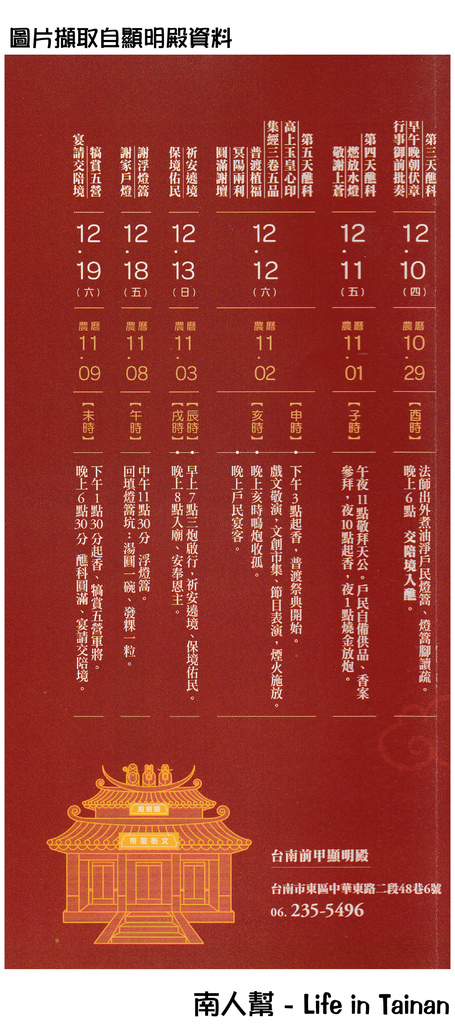 圖片擷取自顯明殿資料
第三天醮科
早午晚朝伏章
行事御前批奏
12.10
（四）
農曆
10.29
【酉時】
法師出外煮油淨戶民燈篙、燈篙腳讀疏。
晚上6點 交陪境入醮。
第四天醮科
燃放水燈
敬謝上蒼
12.11
（五）
農曆
11.01
【子時】
午夜11點敬拜天公。戶民自備供品、香案
參拜，夜10點起香，夜1點燒金放炮。
第五天醮科
高上玉皇心印
集經三卷五品
普渡植福
冥陽兩利
圓滿謝壇
12.12
（六）
農曆
11.02
【申時】
【亥時】
•下午3點起香，普渡祭典開始。
戲文敬演，文創市集、節目表演，煙火施放。
•晚上亥時鳴炮收孤。
•晚上戶民宴客。
祈安遶境
保境佑民
12.13
（日）
農曆
11.03
【辰時】
【戌時】
•早上7點三炮啟行，祈安遶境、保境佑民。
•晚上8點入廟、安奉恩主。
謝浮燈篙
謝家戶燈
12.18
（五）
農曆
11.08
【午時】
中午11點30分 浮燈篙。
回填燈篙坑：湯圓一碗、發粿一粒。
犒賞五營
宴請交陪境
12.19
（六）
農曆
11.09
【未時】
下午1點30分起香、犒賞五營軍將。
晚上6點30分 醮科圓滿、宴請交陪境。
顯明殿
文衡聖帝
台南前甲顯明殿
台南市東區中華東路二段48巷6號
06. 235-5496
南人幫 - Life in Tainan